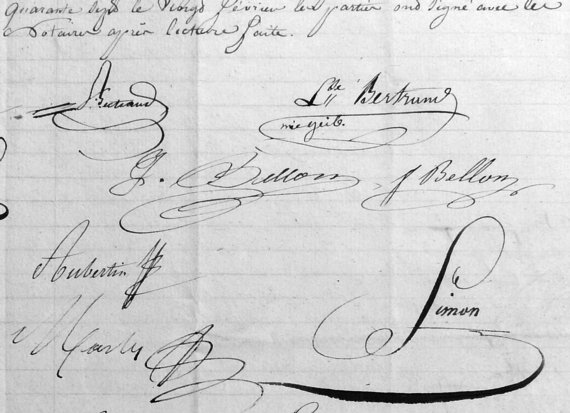 quarante sept le vingt février les parties ont signé avec les
Notaires après lecture faite.
Bertrand
Bertrand
née
J. Bellon J Bellon
Aubertin
Simon
Marly